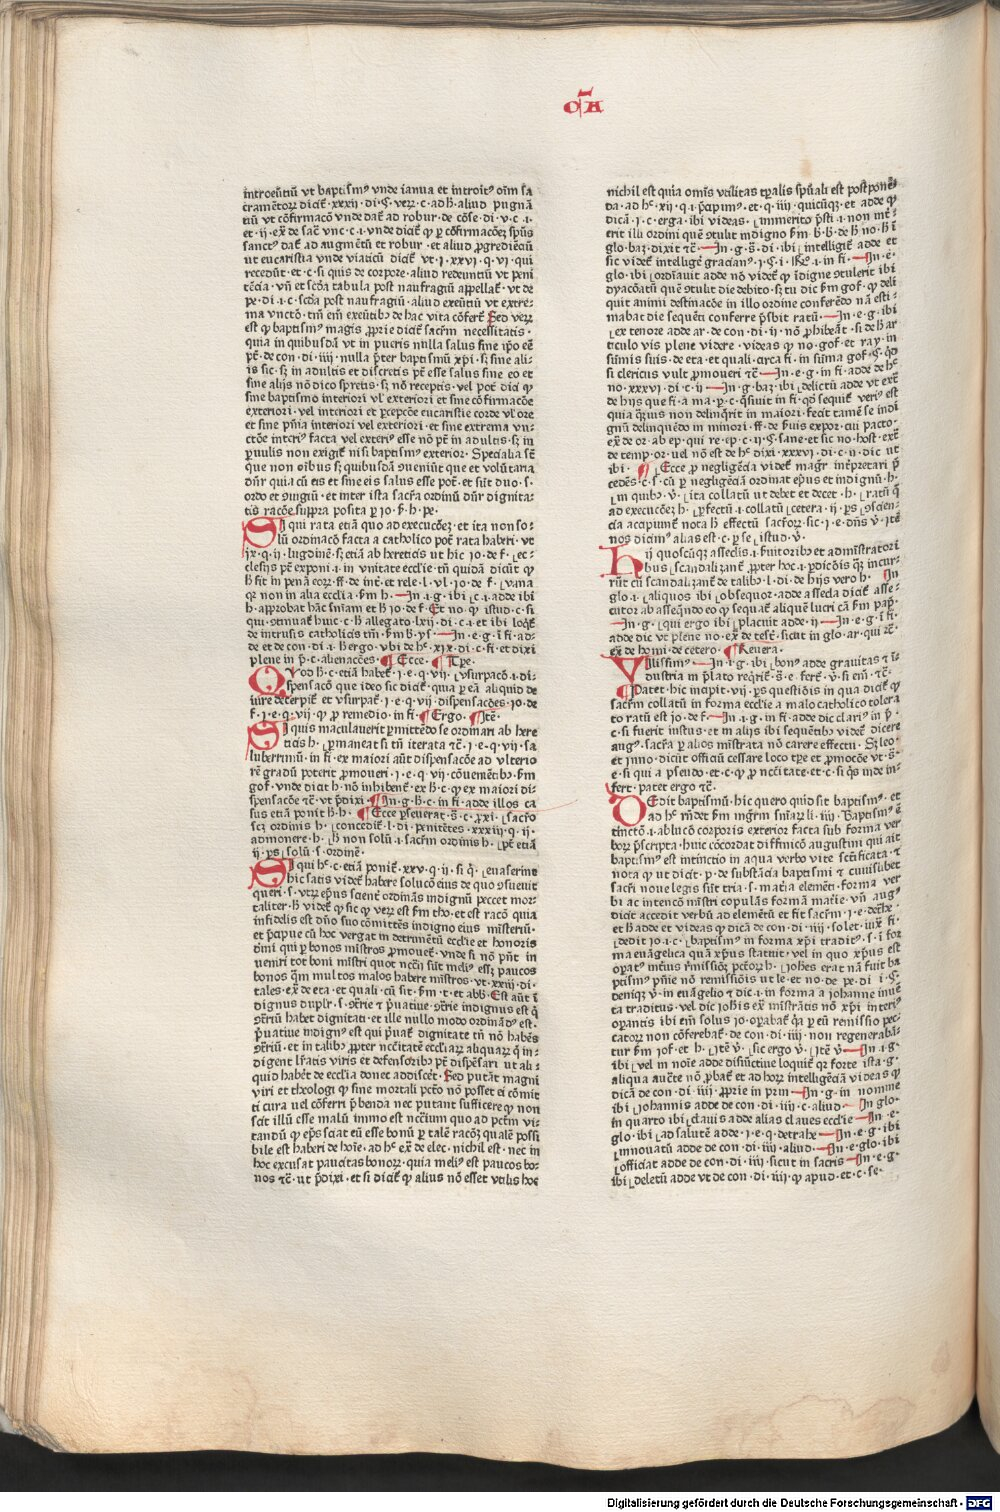 cā A
introeūtiū vt baptismꝰ vnde ianua et introitꝰ oīm sa
cramētorꝝ dicit᷑ xxxij · di · ꝯ · veꝝ · c · ad ħ · aliud pugnā
tiū vt cōfirmacō vnde dat᷑ ad robur · de cōse · di · v · c · i ·
et · ij · ex̄ de sac̄ vnc · c · i · vnde dicit᷑ ꝙ ꝑ cōfirmacōeꝫ spūs
sanctꝰ dat᷑ ad augmētū et robur · et aliud ꝓgrediēciū
ut eucaristia vnde viaticū dicit᷑ vt · i · xxvi · q · vi · qui
recedūt · et · c · si quis de corpore · aliud redeuntiū vt peni
tēcia · vn̄ et scd̄a tabula post naufragiū appellat᷑ · vt de
pe · di · i · c · scd̄a post naufragiū · aliud exeūtiū vt extre-
ma vnctō · tn̄ em̄ exeūtibꝰ de hac vita cōfert᷑ Sed veꝝ
est ꝙ baptismꝰ magis ꝓprie dicit᷑ sacrm̄ necessitatis ·
quia in quibusdā vt in pueris nulla salus sine ip̄o eē
pt̄ · de con · di · iiij · nulla p̄ter baptismū xp̄i · sꝫ sine ali-
is sic · sꝫ in adultis et discretis pt̄ esse salus sine eo et
sine alijs nō dico spretis · sꝫ nō receptis · vel pot᷑ dici ꝙ
sine baptismo interiori vl' exteriori et sine cōfirmacōe
exteriori · vel interiori et ꝑcepcōe eucaristie corde vl' ore
et sine pn̄ia interiori vel exteriori · et sine extrema vn-
ctōe interiꝰ facta vel exteriꝰ esse nō pt̄ in adultis · sꝫ in
ꝑuulis non exigit᷑ nisi baptismus exterior · Specialia st̄
que non oībus sꝫ quibusdā ꝯueniūt que et volūtaria
dn̄r quia cū eis et sine eis salus esse pot᷑ · et sūt duo · s ·
ordo et ꝯiugiū · et inter ista sacrā ordinū dn̄r dignita-
tis racōe suppra posita ꝑ io · ꝟ · h · pe ·
Si qui rata etiā quo ad execucōeꝫ · et ita non so-
lū ordinacō facta a catholico pot᷑ rata haberi · vt
ix · q · ij · lugdineñ · sꝫ etiā ab hereticis ut hic · io · de f · ec-
clesijs pt̄ exponi · i · in vnitate eccl̄ie · tn̄ quidā dicūt ꝙ
ħ fit in penā eoꝝ · ff · de int̄ · et rele · l · vl · io · de f · vana
qꝛ non in alia eccl̄ia · ẜm h · In · i · g · ibi · c · i · adde ibi
h · approbat hāc sn̄iam et ħ io · de f · Et no · ꝙ istud · c · si
qui · ꝯtinuat᷑ huic · c · ħ allegato · lxij · di · c · i · et ibi loqt᷑
de intrusis catholicis tn̄ · ẜm ħ · ys · In · e · g · ī fi · ad-
de et de con · di · i · ħ ergo · vbi de hͦ · xix · di · c · fi · et dixi
plene in p̄ · c · alienacōes · Ecce · Tp̄e ·
Quod ħ · c · etiā habet᷑ · i · e · q · vij · vsurpacō · i · di-
spensacō que ideo sic dicit᷑ · quia ꝑ eā aliquid de
iure decerpit᷑ et vsurpat᷑ · i · e · q · vij · dispensacōes · io · de
f · i · e · q · vij · ꝙ ꝓ remedio · in fi · Ergo · Itē ·
Si quis maculauerit ꝑmittēdo se ordinari ab here
ticis h · ꝑmaneat si tn̄ iterata tc̄ · i · e · q · vij · sa
luberrimū · in fi · ex maiori aūt dispensacōe ad vlterio
rē gradū poterit ꝓmoueri · i · e · q · vij · cōuementibꝰ · ẜm
gof · vnde dicit h · nō inhibent᷑ · ex ħ · c · ꝙ ex maiori di-
spensacōe tc̄ · vt p̄dixi · In · g · ħ · c · in fi · adde illos ca
sus etiā ponit ħ · h · Ecce ꝑseuerat · s̄ · c · ꝓxi · sacro
scꝫ ordinis h · concedit᷑ · l · di · penitētes · xxxiij · q · ij ·
admonere · h · ħ non solū · i · sacrm̄ ordinis h · pt̄ etiā
ij · ps · solū · s · ordinē ·
Si qui hͦ · c · etiā ponit᷑ · xxv · q · ij · si q̄ · euaserint
hic satis videt᷑ habere solucō eius de quo ꝯsueuit
queri · s · vtꝝ ep̄us scient᷑ ordināns indignū peccet mor-
taliter · ħ videt᷑ ꝙ sic ꝙ veꝝ est ẜm tho · et est racō quia
infidelis est dn̄o suo cōmittēns indigno eius misteriū ·
et p̄cipue cū hoc vergat in detrimētū eccl̄ie et honoris
diuini qui ꝑ bonos mīstros ꝓmouet᷑ · vnde si nō pn̄t in
ueniri tot boni mīstri quot nccīi sūt meliꝰ esꝫ paucos
bonos qꝫm multos malos habere mīstros · vt · xxiij · di ·
tales · ex̄ de eta · et quali · cū sit · ẜm · t · et abb · Est aūt ī
dignus duplr̄ · s · ꝯtrie et p̄uatiue · ꝯtrie indignus est q̄
ꝯtriū habet dignitati · et ille nullo modo ordinād᷒ est ·
p̄uatiue indignꝰ est qui p̄uat᷑ dignitate tn̄ nō habēs
ꝯtriū · et in talibꝰ ꝓpter nccītatē eccl̄iaꝝ aliquaꝝ q̄ in-
digent lr̄atis viris et defensoribꝰ pt̄ dispēsari ut ali-
quid habēt de eccl̄ia donec addiscēt · Sed putāt magni
viri et theologi ꝙ sine mortali pctō nō posset ei cōmit
ti cura uel cōferri p̄benda nec putant sufficere ꝙ non
scit illū esse malū immo est nccīum quo ad pctm̄ vi-
tandū ꝙ ep̄s sciat eū esse bonū ꝑ talē racōeꝫ qualē possi
bile est haberi de hoīe · ad hͦ ex̄ de elec · nichil est · nec in
hoc excusat paucitas bonoꝝ · quia meliꝰ est paucos bo-
nos tc̄ · ut p̄dixi · et si dicit᷑ ꝙ alius nō esset vtilis hoc
nichil est quia oīms vtilitas tp̄alis spūali est postponē-
da · ad hͦ · xij · q · i · p̄cipimꝰ · et · q · iiij · quicūqꝫ · et adde ꝙ
dicā · i · c · erga · ibi videas · immerito p̄sti · i · non mē-
erit illi ordini quē ꝯtulit indigno ẜm ħ · ħ · de ħ no · ħ ī
glo · baꝫ · dixit tc̄ · In · g · s̄ · di · ibi intelligit᷑ adde et
sic videt᷑ intelligē gracianꝰ · i · ꝯ · i · in fi · In · e ·
glo · ibi ordīauit adde nō videt᷑ ꝙ īdigne ꝯtulerit ibi
dyacōatū quē ꝯtulit die debito · sꝫ tu dic ẜm gof · ꝙ deli
quit animi destinacōe in illo ordine conferēdo nā esti-
mabat die sequēti conferre p̄sbit ratū · In · e · g · ibi
ex tenore adde ar · de con · di · ij · nō ꝓhibeāt · si de ħ ar
ticulo vis plene videre · videas ꝙ no · gof · et ray · in
sūmis suis · de eta · et quali · circa fi · in sūma gof · ꝯ · qͥd
si clericus vult ꝓmoueri tc̄ · In · e · g · in fi · adde de hͦ
no · xxxvi · di · c · ij · In · g · baꝫ · ibi delictū adde vt ex̄
de hijs que fi · a ma · p · c · q̄siuit in fi · qd̄ sequit᷑ veriꝰ est
quia qͣuis non delinq̄rit in maiori · fecit tamē se indi
gnū delinquēdo in minori · ff · de ẜuis expor · cui pacto ·
ex̄ de or · ab ep · qui re · ep · c · ij · ꝯ · sane · et sic no · host · ex̄
de temp · or · uel nō est de hͦ dixi · xxxvi · di · c · ij · dic ut
ibi · Ecce ꝓ negligēcia videt᷑ magr̄ int᷑pretari p̄
cedēs · c · s · cū ꝑ negligēciā ordinat ep̄us et indignū h ·
in quibꝰ · ꝟ · ita collatū ut debet et decet · h · ratū q̄
ad execucōeꝫ h · ꝑfectū · i · collatū cetera · ij · ps · ꝯscien-
cia accipiunt nota ħ effectū sacroꝝ · sic · i · e · dn̄s · ꝟ · itē
nos dicimꝰ · alias est · c · ꝑ se istud · ꝟ ·
Hij quoscūqꝫ assedis · i · ẜuitoribꝰ et admīstratori
bus scandaliꝫanē · ꝓpter hoc · i · ꝑdicōis qꝫ incur-
rūt cū scandaliꝫant · de talibꝰ · l · di · de hijs vero h · In
glo · i · aliquos ibi obsequor · adde asseda dicit᷑ asse-
cutor ab asseq̄ndo eo ꝙ sequat᷑ aliquē lucri cā ẜm pap̄ ·
In · g · qui ergo ibi placuit adde · ij · In · e · g · ī fi ·
adde dic vt plene no · ex̄ de test̄ · sicut in glo · ar · qui tc̄ ·
ex̄ de homi · de cetero · Reuera ·
Vilissimꝰ In · i · g · ibi bonꝰ adde grauitas t ī
dustria in p̄lato req̄rit᷑ · s̄ · e · fert᷑ · ꝟ · si em̄ · tc̄ ·
Patet hic incipit · vij · ps questiōis in qua dicit᷑ ꝙ
sacrm̄ collatū in forma eccl̄ie a malo catholico tolera
to ratū est · io · de f · In · i · g · in fi · adde dic clariꝰ in p̄ ·
c · si fuerit iustus · et in alijs ibi sequētibꝰ videt᷑ dicere
augꝰ · sacrā ꝑ alios mīstrata nō carere effectu · Sꝫ leo
et inno · dicūt officiū cessare loco tp̄e et ꝓmocōe vt · s̄ ·
e · si qui a pseudo · et · c · ꝙ ꝓ nccītate · et · c · si qͥs inde in-
fert · patet ergo tc̄ ·
Dedit baptismū · hic quero quid sit baptismꝰ · et
ad hͦ rn̄det ẜm mgr̄m sn̄iaꝝ li · iiij · Baptismꝰ ē
tinctō · i · ablucō corporis exterior facta sub forma ver
boꝝ p̄scripta · huic cōcordat diffinicō augustini qui ait
baptismꝰ est intinctio in aqua verbo vite sctīficata · t
nota ꝙ ut dicit · p · de substācia baptismi t cuiuslibet
sacrī noue legis sūt tria · s · mat̄ia elemēti · forma ver
bi ac intencō mīstri copulās formā mat̄ie · vn̄ augꝰ
dicit accedit verbū ad elemētū et fit sacrm̄ · i · e · det̄he ·
et ħ adde et videas ꝙ dicā de con · di · iiij · solet · iux̄ fi ·
dedit io · i · c · baptismꝰ in forma xp̄i traditꝰ · s · ī for
ma euāgelica quā xp̄us statuit · vel in quo xp̄us est
operatꝰ intiuꝰ remissiōꝫ pctōꝝ h · ioh̄es erat nā fuit ba
ptismꝰ pn̄ie nō remissiōis ut le · et no · de pe · di · i · ꝯ ·
deniqꝫ · ꝟ · in euāgelio t dic · i · in forma a iohanne inuē
ta traditus · vel dic ioh̄is ex̄ mīstrātis nō xp̄i interiꝰ
oꝑantis ibi em̄ solus io · oꝑabat᷑ q̄a ꝑ eū remissio pec-
catoꝝ non cōferebat᷑ · de con · di · iiij · non regenerabā-
tur ẜm ioſ · et h · itē · ꝟ · sic ergo · ꝟ · itē · ꝟ In · i · g ·
ibi vel in noīe adde disiūctiue loquit᷑ qꝛ forte ista · g ·
aliqua auctē nō ꝓbat᷑ et ad hoꝝ intelligēciā videas ꝙ
dicā de con · di · iiij · ꝓprie in prin In · g · in nomine
ibi iohannis adde de con · di · iiij · c · aliud In glo ·
in quarto ibi clauis adde alias claues eccl̄ie In · e ·
glo · ibi ad salutē adde · i · e · q · detrahe In · e · g · ibi
innouatū adde de con · di · iiij · aliud In · e · glo · ibi
officiat adde de con · di · iiij · sicut in sacris In · e · g ·
ibi deletū adde vt de con · di · iiij · ꝙ apud · et · c · se ·
Digitalisierung gefördert durch die Deutsche Forschungsgemeinschaft - DFG